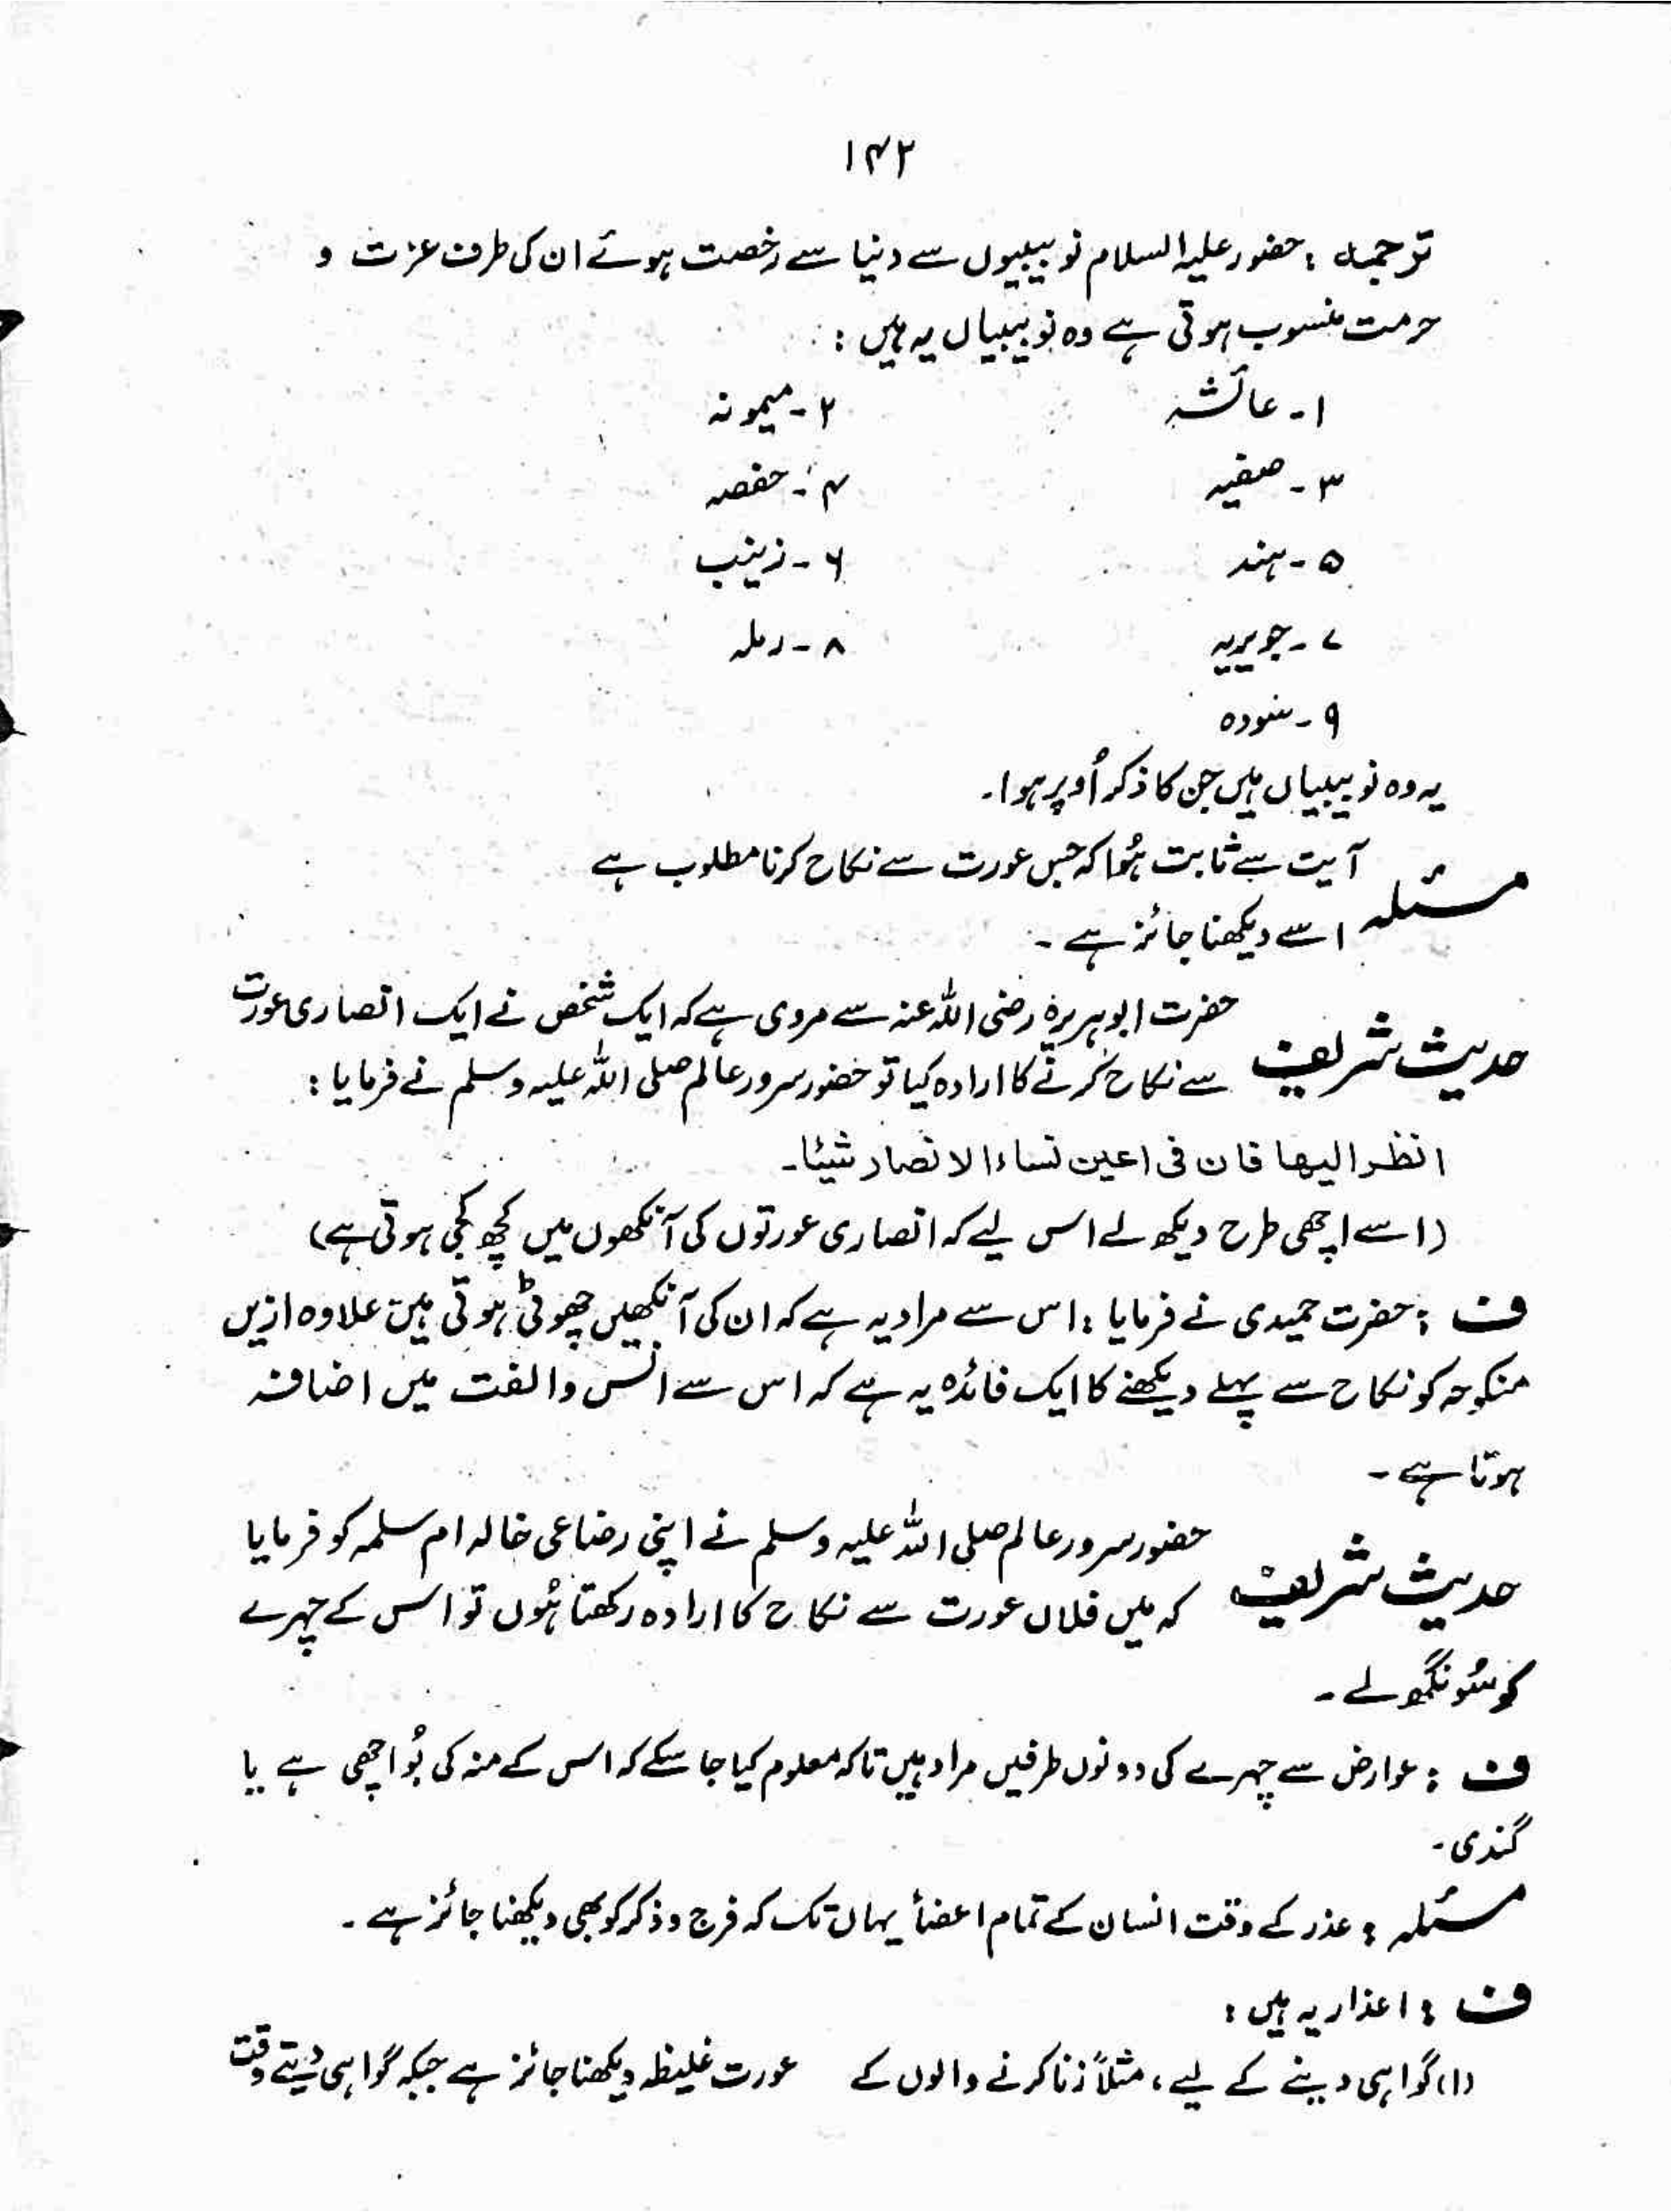 ۱۴۲
ترجمہ : حضور علیہ السلام نو بیبیوں سے دنیا سے رخصت ہوئے ان کی طرف عزت و
حرمت منسوب ہوتی ہے وہ نو بیبیاں یہ ہیں :
۱۔ عائشہ ۲۔ میمونہ
۳۔ صفیہ ۴۔ حفصہ
۵۔ ہند ۶۔ زینب
۷۔ جویریہ ۸۔ رملہ
۹۔ سودہ
یہ وہ نو بیبیاں ہیں جن کا ذکر اُوپر ہوا۔
مسئلہ آیت سے ثابت ہُوا کہ جس عورت سے نکاح کرنا مطلوب ہے
اسے دیکھنا جائز ہے۔
حدیث شریف حضرت ابوہریرہ رضی اللہ عنہ سے مروی ہے کہ ایک شخص نے ایک انصاری عورت
سے نکاح کرنے کا ارادہ کیا تو حضور سرور عالم صلی اللہ علیہ وسلم نے فرمایا :
انظر الیھا فان فی اعین نساء الانصار شیئا۔
(اسے اچھی طرح دیکھ لے اس لیے کہ انصاری عورتوں کی آنکھوں میں کچھ کجی ہوتی ہے)
ف : حضرت حمیدی نے فرمایا : اس سے مراد یہ ہے کہ ان کی آنکھیں چھوٹی ہوتی ہیں علاوہ ازیں
منکوحہ کو نکاح سے پہلے دیکھنے کا ایک فائدہ یہ ہے کہ اس سے انس و الفت میں اضافہ
ہوتا ہے۔
حدیث شریف حضور سرور عالم صلی اللہ علیہ وسلم نے اپنی رضاعی خالہ ام سلمہ کو فرمایا
کہ میں فلاں عورت سے نکاح کا ارادہ رکھتا ہُوں تو اس کے چہرے
کو سُونگھ لے۔
ف : عوارض سے چہرے کی دونوں طرفیں مراد ہیں تاکہ معلوم کیا جا سکے کہ اس کے منہ کی بُو اچھی ہے یا
گندی۔
مسئلہ : عذر کے وقت انسان کے تمام اعضأ یہاں تک کہ فرج و ذکر کو بھی دیکھنا جائز ہے۔
ف : اعذار یہ ہیں :
(۱) گواہی دینے کے لیے، مثلاً زنا کرنے والوں کے عورت غلیظہ دیکھنا جائز ہے جبکہ گواہی دیتے وقت